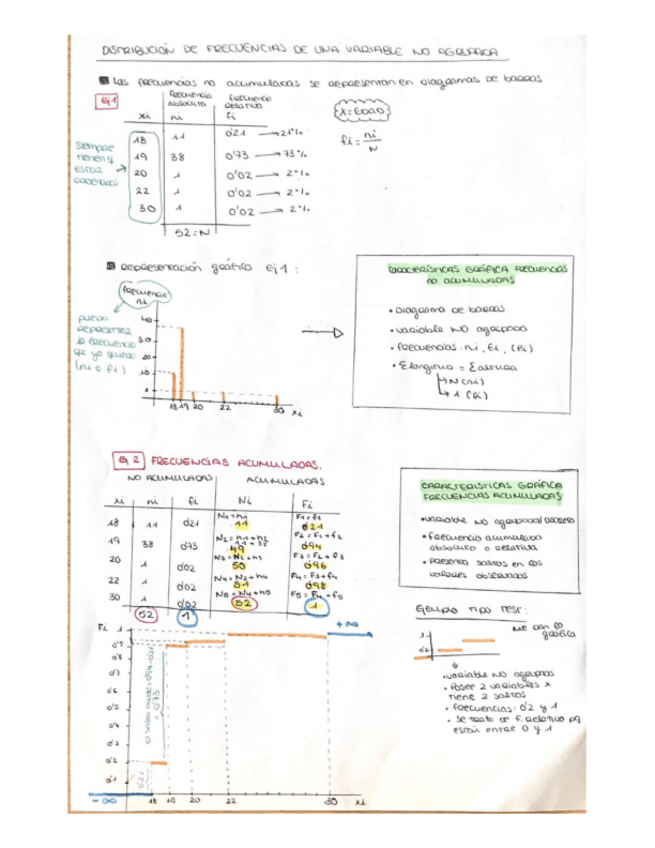 DISTRIBUCIÓN DE FRECUENCIAS DE UNA VARIABLE NO AGRUPADA
Las frecuencias no acumuladas se representan en diagramas de barras
Ej 1
frecuencia absoluta
frecuencia relativa
xi ni fi
X = EDAD
fi = ni / N
18 11 0'21 → 21%
19 38 0'73 → 73%
20 1 0'02 → 2%
22 1 0'02 → 2%
30 1 0'02 → 2%
52 = N
siempre
tienen q
estar
ordenados
Representación gráfica Ej 1 :
frecuencia
ni
puedo
representar
la frecuencia
que yo quiera
(ni o fi)
40
30
20
10
1
18 19 20 22 30 xi
CARACTERÍSTICAS GRÁFICA FRECUENCIAS
NO ACUMULADAS
• Diagrama de barras
• variable NO agrupada
• frecuencias: ni, fi, (Pi)
• Σ longitud = Σ altura
N (ni)
1 (fi)
Ej 2 FRECUENCIAS ACUMULADAS.
NO ACUMULADAS ACUMULADAS
xi ni fi Ni Fi
18 11 0'21 N1 = n1 11 F1 = f1 0'21
19 38 0'73 N2 = n1 + n2 11 + 38 49 F2 = F1 + f2 0'94
20 1 0'02 N3 = N2 + n3 50 F3 = F2 + f3 0'96
22 1 0'02 N4 = N3 + n4 51 F4 = F3 + f4 0'98
30 1 0'02 N5 = N4 + n5 52 F5 = F4 + f5 1
52 1
CARACTERISTICAS GRÁFICA
FRECUENCIAS ACUMULADAS
• variable NO agrupada/discreta
• frecuencia acumulada
absoluta o relativa
• Presenta saltos en los
valores observados
Ejemplo tipo TEST:
Me dan la
gráfica
1
0'2
• variable NO agrupada
• Posee 2 variables x
tiene 2 saltos
• frecuencias: 0'2 y 1
• Se trata de F. relativa pq
están entre 0 y 1
Fi
1
0'9
0'8
0'7
0'6
0'5
0'4
0'3
0'2
0'1
El salto mide = 0'94 - 0'21
= 0'73
0'21
+ ∞
- ∞
18 19 20 22 30 xi